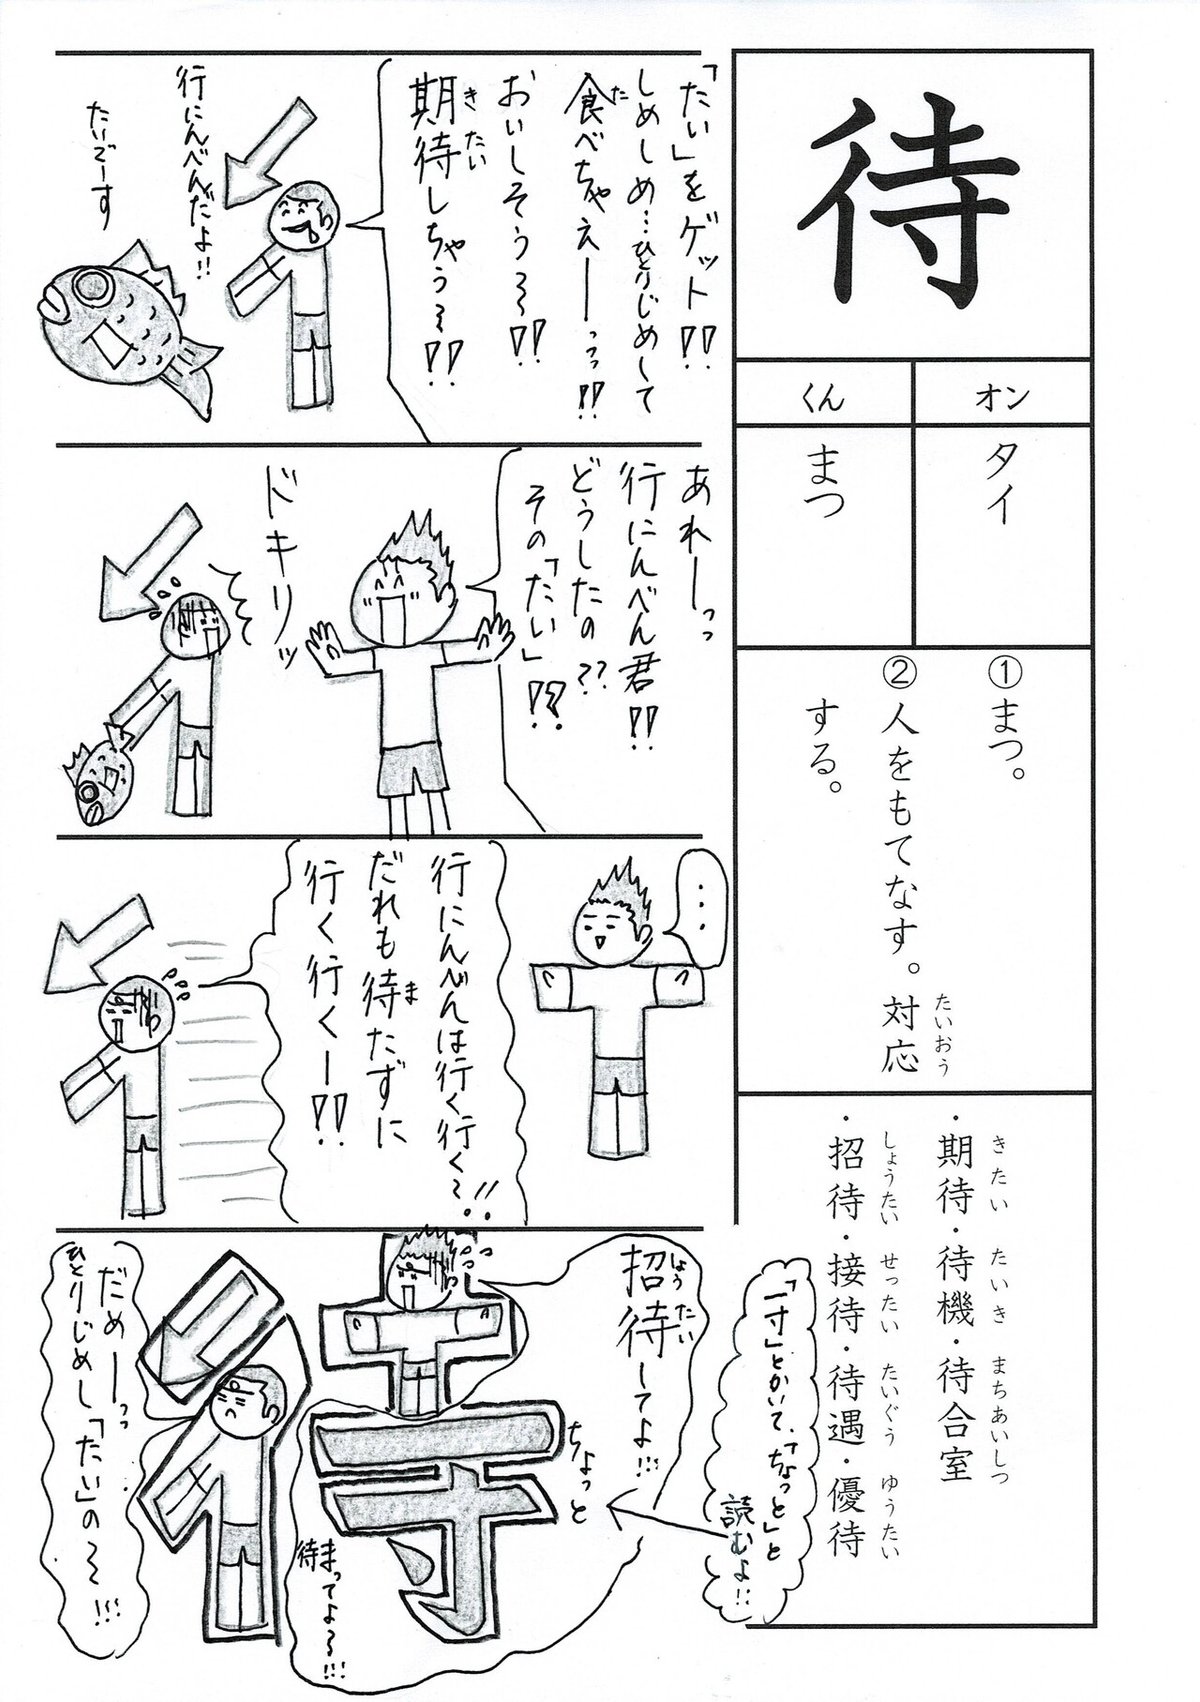 待
オン
タイ
くん
まつ
①まつ。
②人をもてなす。対応
たいおう
する。
・期待・待機・待合室
きたい たいき まちあいしつ
・招待・接待・待遇・優待
しょうたい せったい たいぐう ゆうたい
「たい」をゲット!!
しめしめ…ひとりじめして
食べちゃえーーっっ!!
た
おいしそう〜〜!!
期待しちゃう〜!!
きたい
行にんべんだよ!!
たいでーす
あれーーっっ
行にんべん君!!
どうしたの??
その「たい」!?
ドキリッ
・・・
行にんべんは行く行く〜!!
だれも待たずに
ま
行く行くー!!
招待してよ!!!
しょうたい
ちょっと
待ってよ〜!!!
ま
「一寸」とかいて、「ちょっと」と
読むよ!!
だめーーっっ
ひとりじめし「たい」の〜!!!